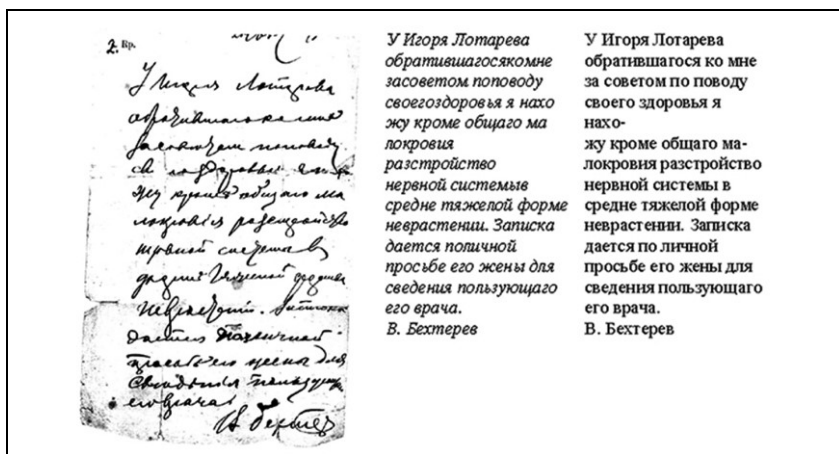 2. Кр.
У Игоря Лотарева
обратившагося ко мне
за советом по поводу
своего здоровья я нахо
жу кроме общаго ма
локровія разстройство
нервной системы в
средне тяжелой форме
неврастении. Записка
дается по личной
просьбе его жены для
сведения пользующаго
его врача
В Бехтерев
У Игоря Лотарева
обратившагосякомне
засоветом поповоду
своегоздоровья я нахо
жу кроме общаго ма
локровия
разстройство
нервной системыв
средне тяжелой форме
неврастении. Записка
дается поличной
просьбе его жены для
сведения пользующаго
его врача.
В. Бехтерев
У Игоря Лотарева
обратившагося ко мне
за советом по поводу
своего здоровья я
нахо-
жу кроме общаго ма-
локровия разстройство
нервной системы в
средне тяжелой форме
неврастении. Записка
дается по личной
просьбе его жены для
сведения пользующаго
его врача.
В. Бехтерев